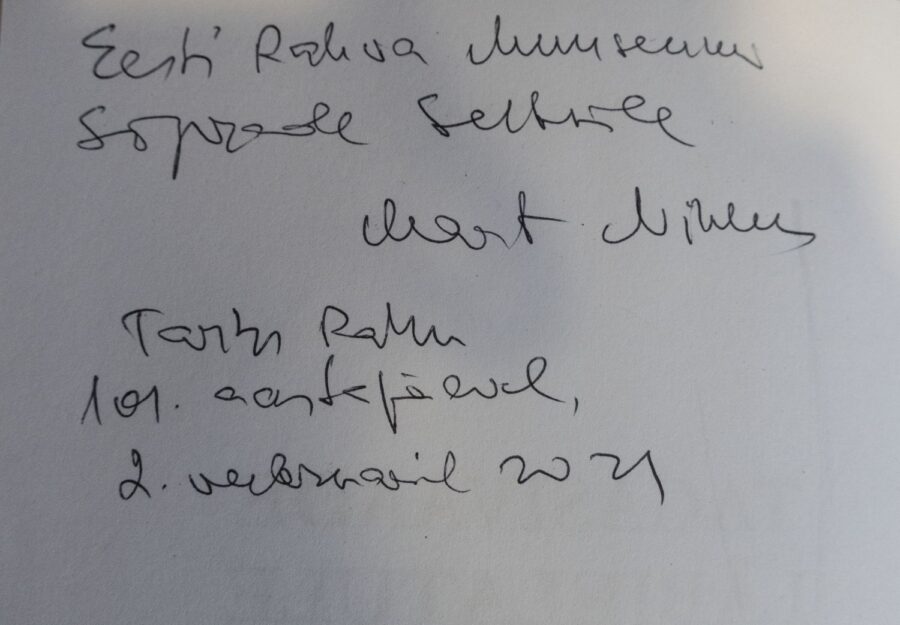 Eesti Rahva Muuseumi
Sõprade Seltsile
Mart Niklus
Tartu Rahu
101. aastapäeval,
2. veebruaril 2021